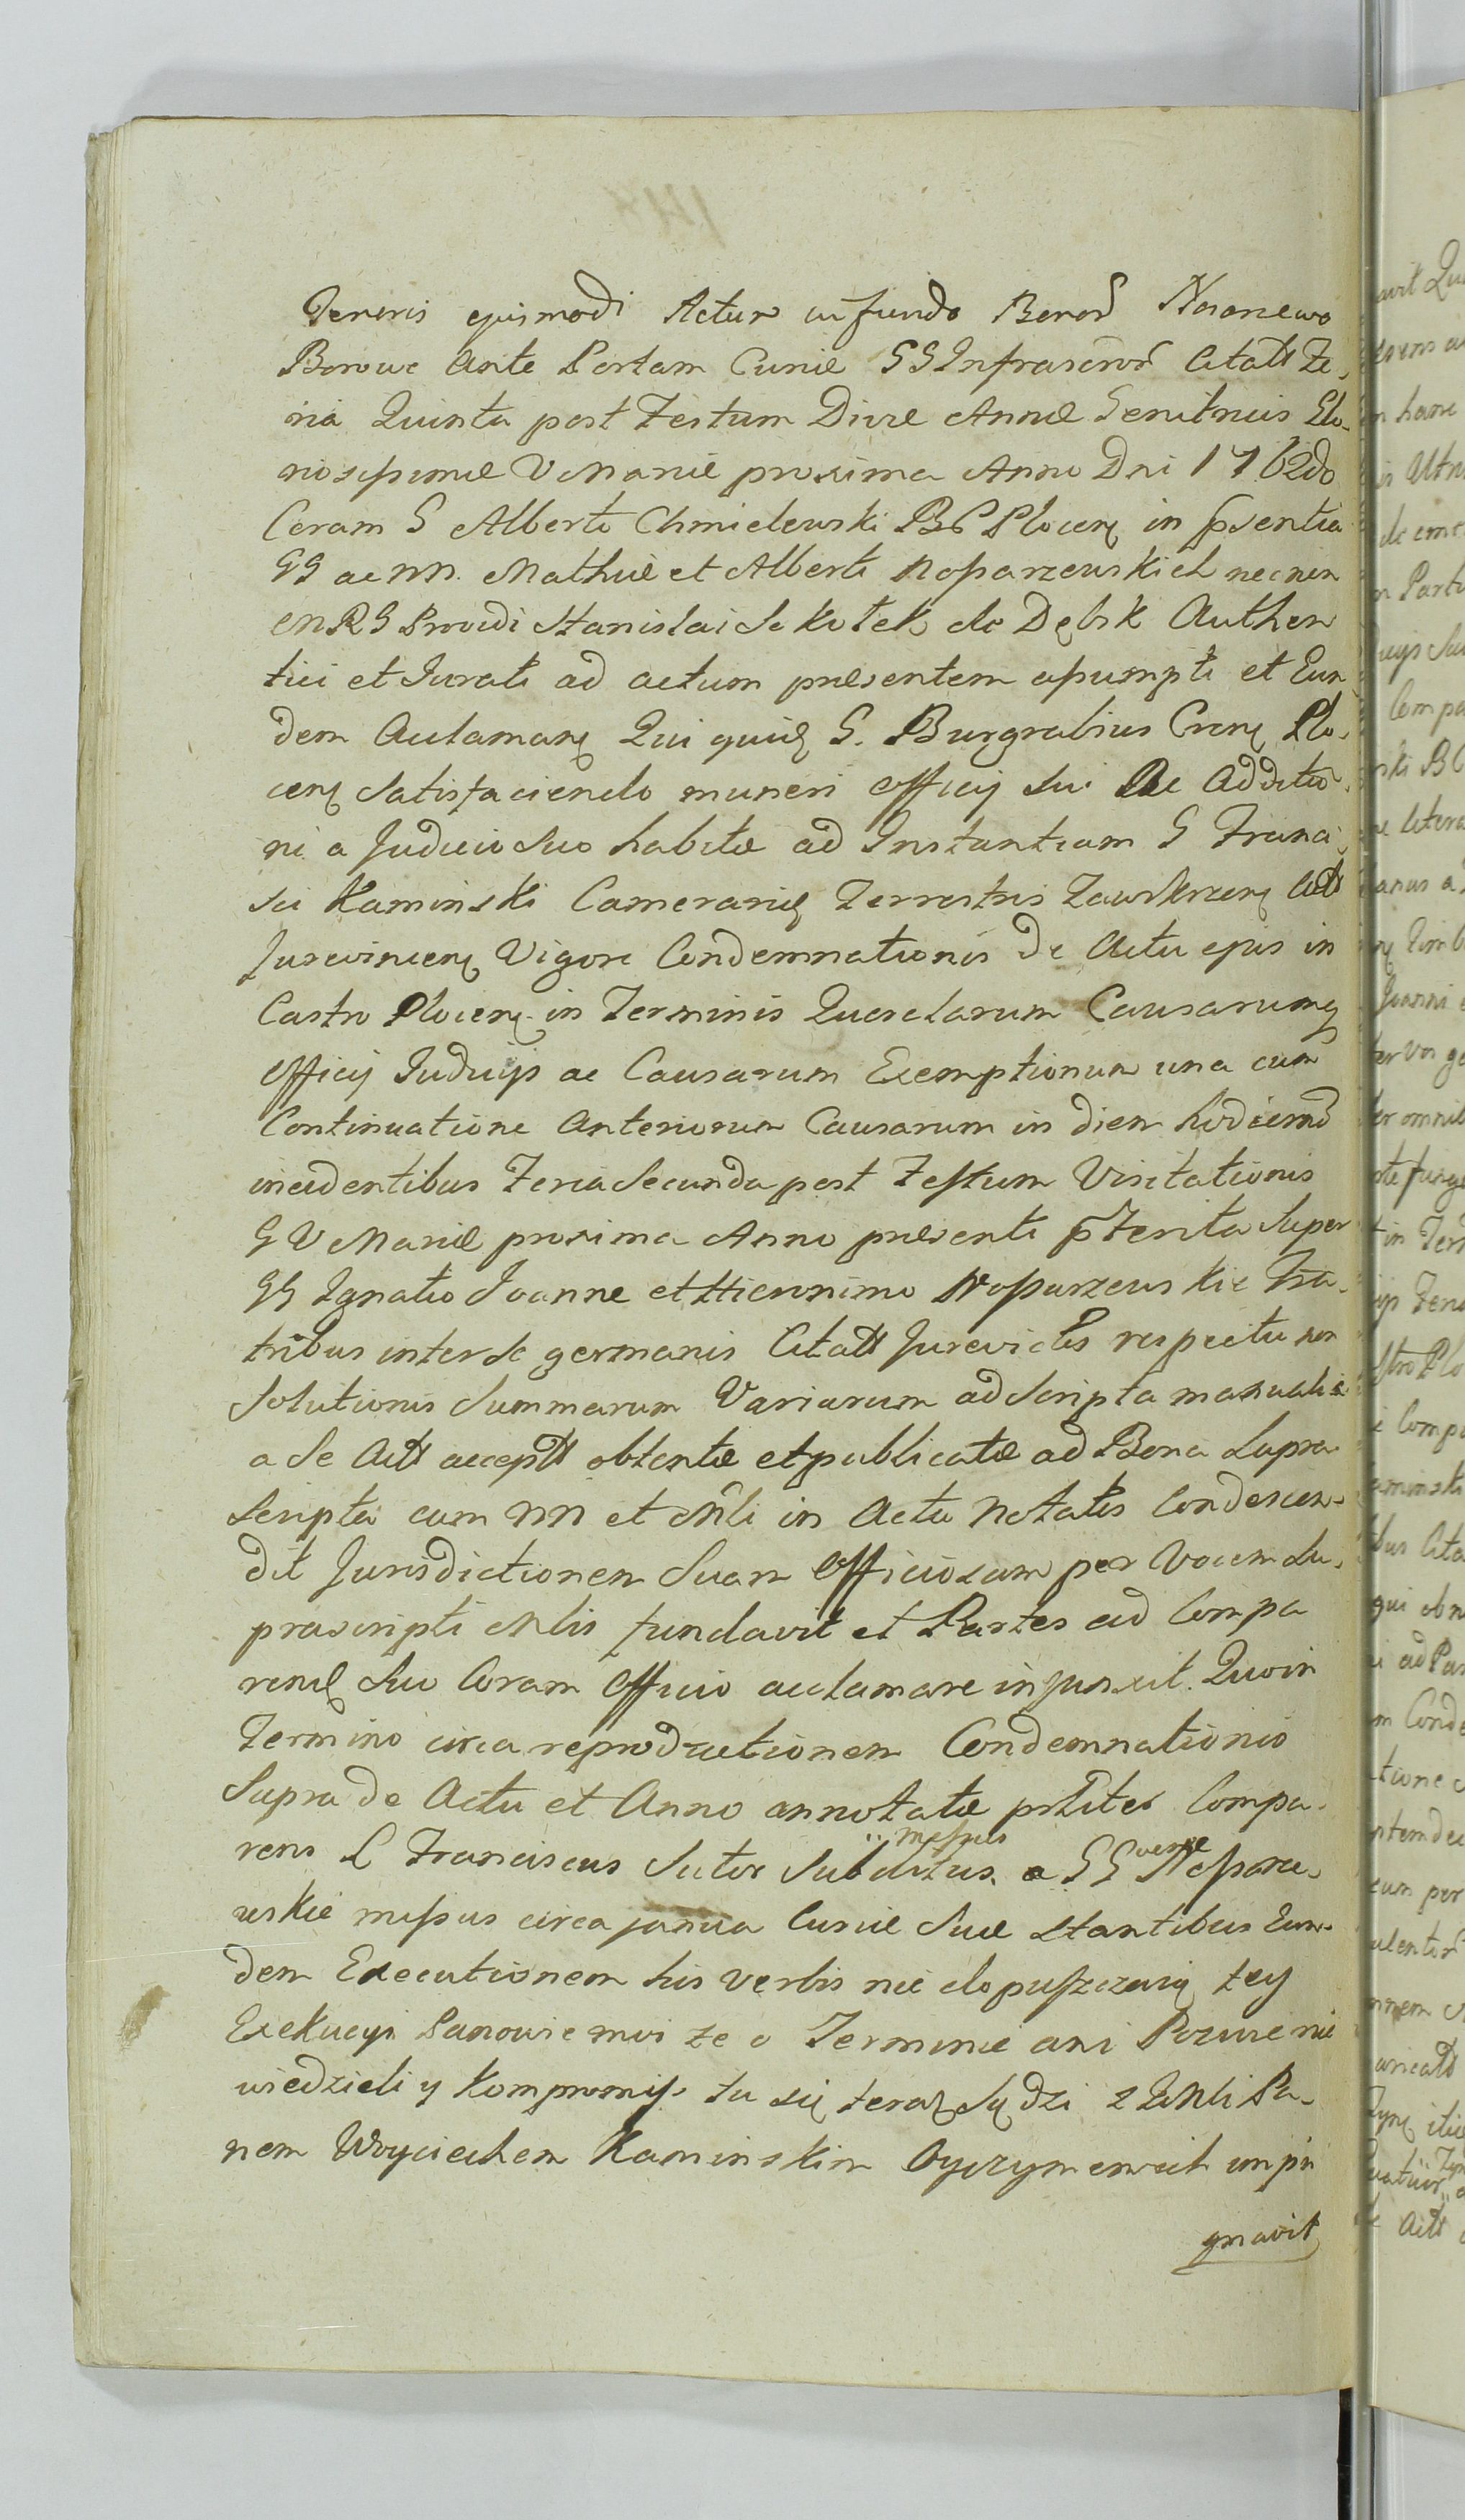 Tenoris ejusmodi Actum in fundo Bonor Nosarzewo
Borowe Ante Portam Curiæ GG Infrascror Citatt Fe-
ria Quinta post Festum Divæ Annæ Genitricis Glo-
riosissimæ V Mariæ proxima Anno Dni 1762do
Coram G Alberto Chmielewski BC Plocen in psentia
GG ac NN. Mathiæ et Alberti Noszarzewskich necnon
MRG Providi Stanislai Sokołek de Dębsk Authen
tici et Jurati ad actum præsentem assumpti et Eun
dem Aclaman Qui quid G. Burgrabius Cren Plo-
cen Satisfaciendo muneri Officij Sui Ac Additio-
ni a Judicio Suo habitæ ad Instantiam G Franci-
sci Kaminski Camerarij Terrestris Zawskrzen Actt
Jurevincen Vigore Condemnationis de Actu ejus in
Castro Plocen in Terminis Querelarum Causarumq
Officij Judicijs ac Causarum Exemptionum una cum
Continuatione Anteriorum Causarum in diem hodierno
incidentibus Feria Secunda post Festum Visitationis
G V Mariæ proxima Anno præsenti pterita Super
GG Ignatio Joanne et Hieronimo Noszarzewskie Fra-
tribus inter Se germanis Citatt Jurevictis respectu non
Solutionis Summarum Variarum ad Scripta manualia
a Se Actt acceptt obtentæ et publicatæ ad Bona Supra
Scripta cum NN et Mli in Actu Notatis Condescen-
dit Jurisdictionem Suam Officiosam per Vocem Su-
prascripti Mlis fundavit et Partes ad Compa
rend Suo Coram Officio acclamare injunxit. Quo in
Termino circa reproductionem Condemnationis
Supra de Actu et Anno annotatæ psliter Compa-
rens L Franciscus Sutor Subditus missus a GG verse Noszarze-
wskie missus circa janua Curiæ Suæ Stantibus Eun-
dem Executionem his verbis nie dopuszczaią tey
Exekucyi Panowie moi ze o Terminie ani Pozwie nie
wiedzieli y Kompromiss tu się teraz Sądzi z JMci Pa-
nem Woyciechem Kaminskim Oyczymem eit impu
gnavit